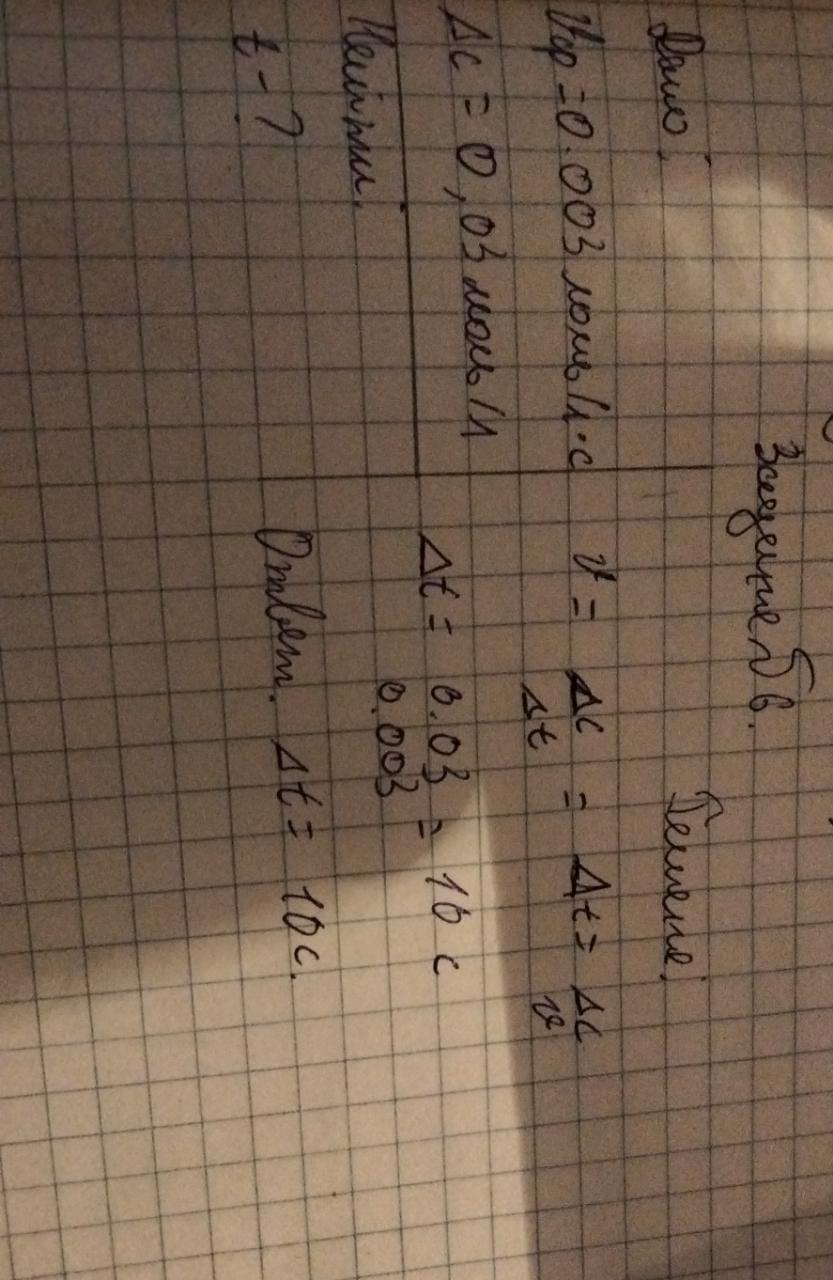 Задание № 6.
Дано:
Vср = 0.003 моль/л·с
Δc = 0,03 моль/л
Найти:
t - ?
Решение:
v = Δc/Δt = Δt = Δc/v
Δt = 0.03/0.003 = 10 c
Ответ. Δt = 10 c.